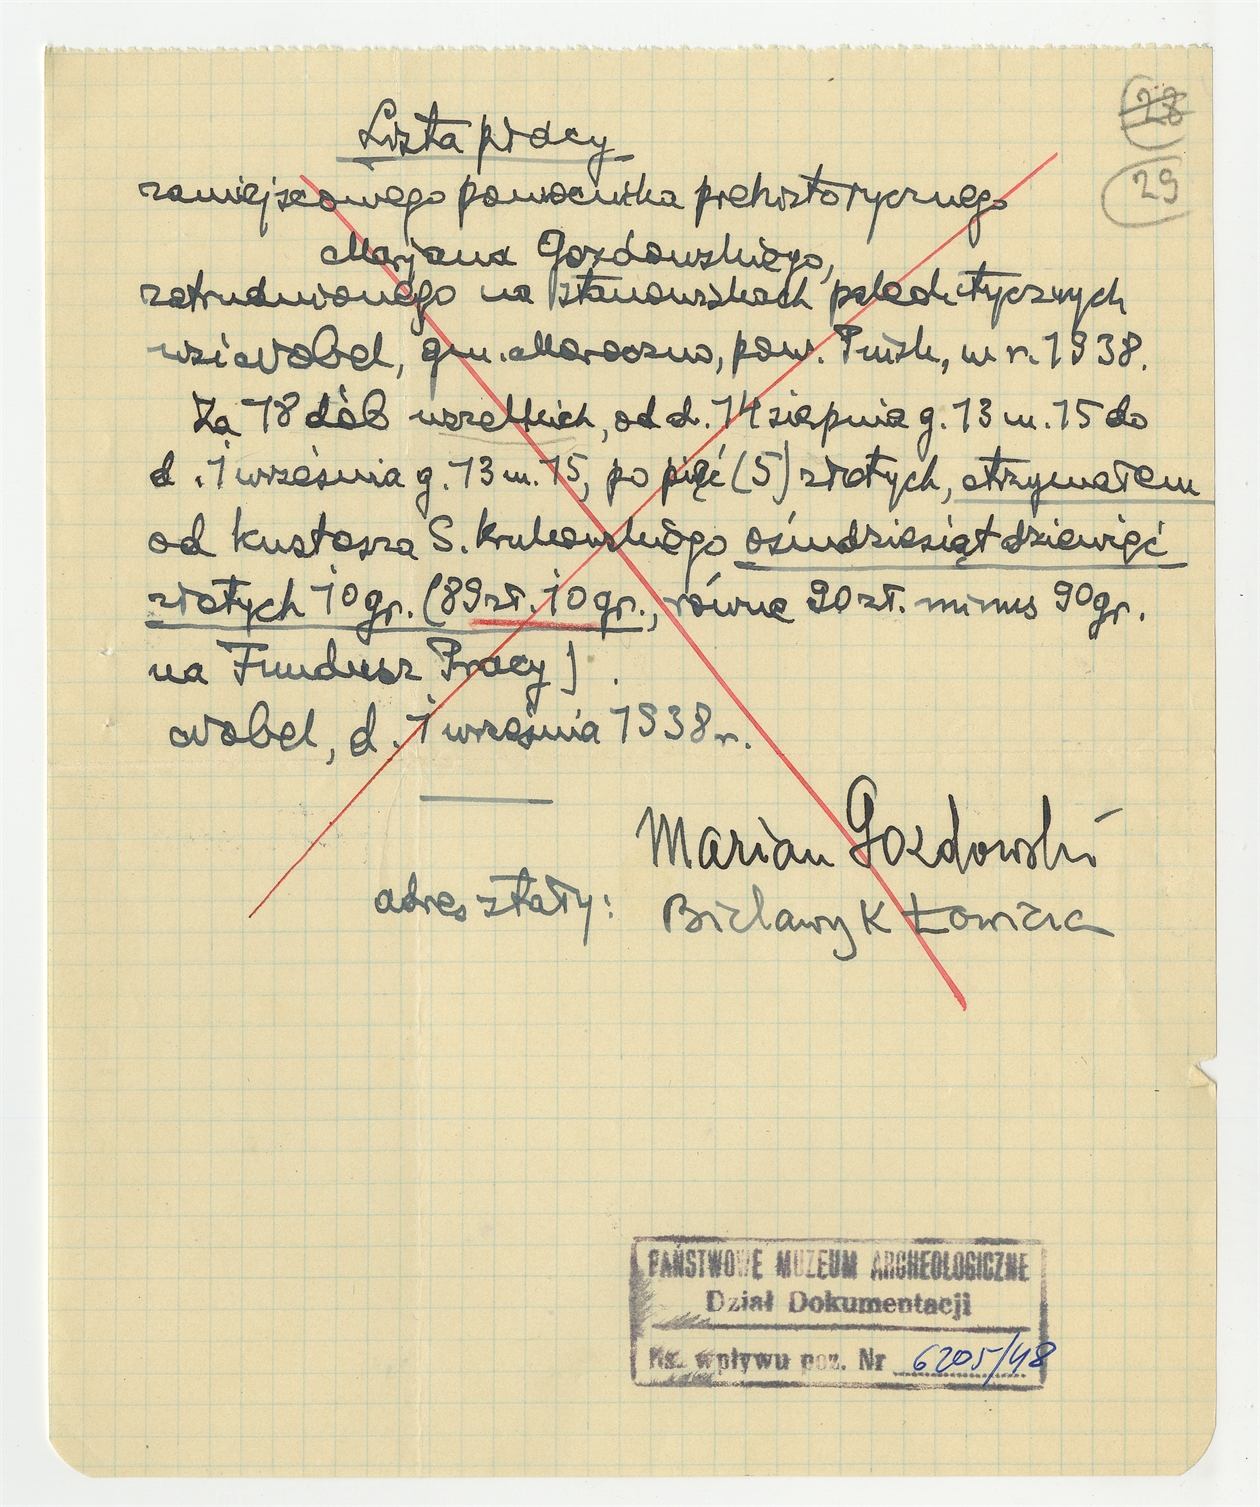 28
29
Lista pracy
zamiejscowego pomocnika prehistorycznego
Marjana Gozdowskiego,
zatrudnionego na stanowiskach paleolitycznych
wsi Nobel, gm. Moroczno, pow. Pińsk, w r. 1938.
Za 18 dób wszelkich, od d. 14 sierpnia g. 13 m. 15 do
d. 1 września g. 13 m. 15, po pięć (5) złotych, otrzymałem
od kustosza S. Krukowskiego ośmdziesiąt dziewięć
złotych 10 gr. (89 zł. 10 gr., równe 90 zł. minus 90 gr.
na Fundusz Pracy).
Nobel, d. 1 września 1938 r.
Marian Gozdowski
adres stały: Bielawy k Łowicza
PAŃSTWOWE MUZEUM ARCHEOLOGICZNE
Dział Dokumentacji
Ks. wpływu poz. Nr 6205/48